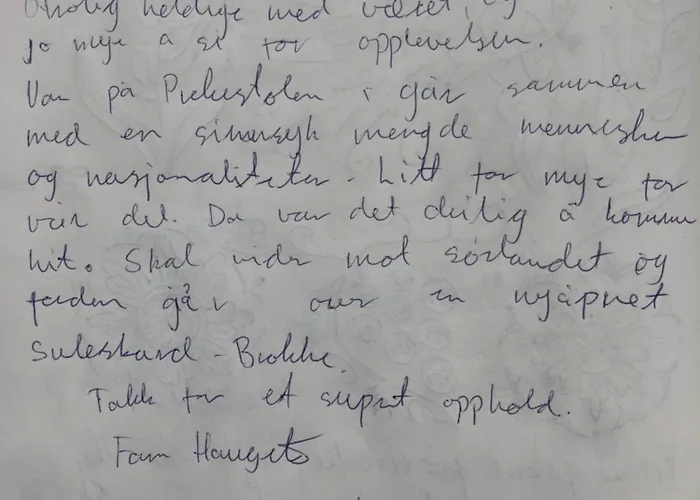 Utrolig heldige med været, og
jo mye å si for opplevelsen.
Var på Prekestolen i går sammen
med en sinnsyk mengde mennesker
og nasjonaliteter. Litt for mye for
vår del. Da var det deilig å komme
hit. Skal vidr mot sørlandet og
ferden går over en nyåpnet
Suleskard - Brokke.
Takk for et supert opphold.
Fam